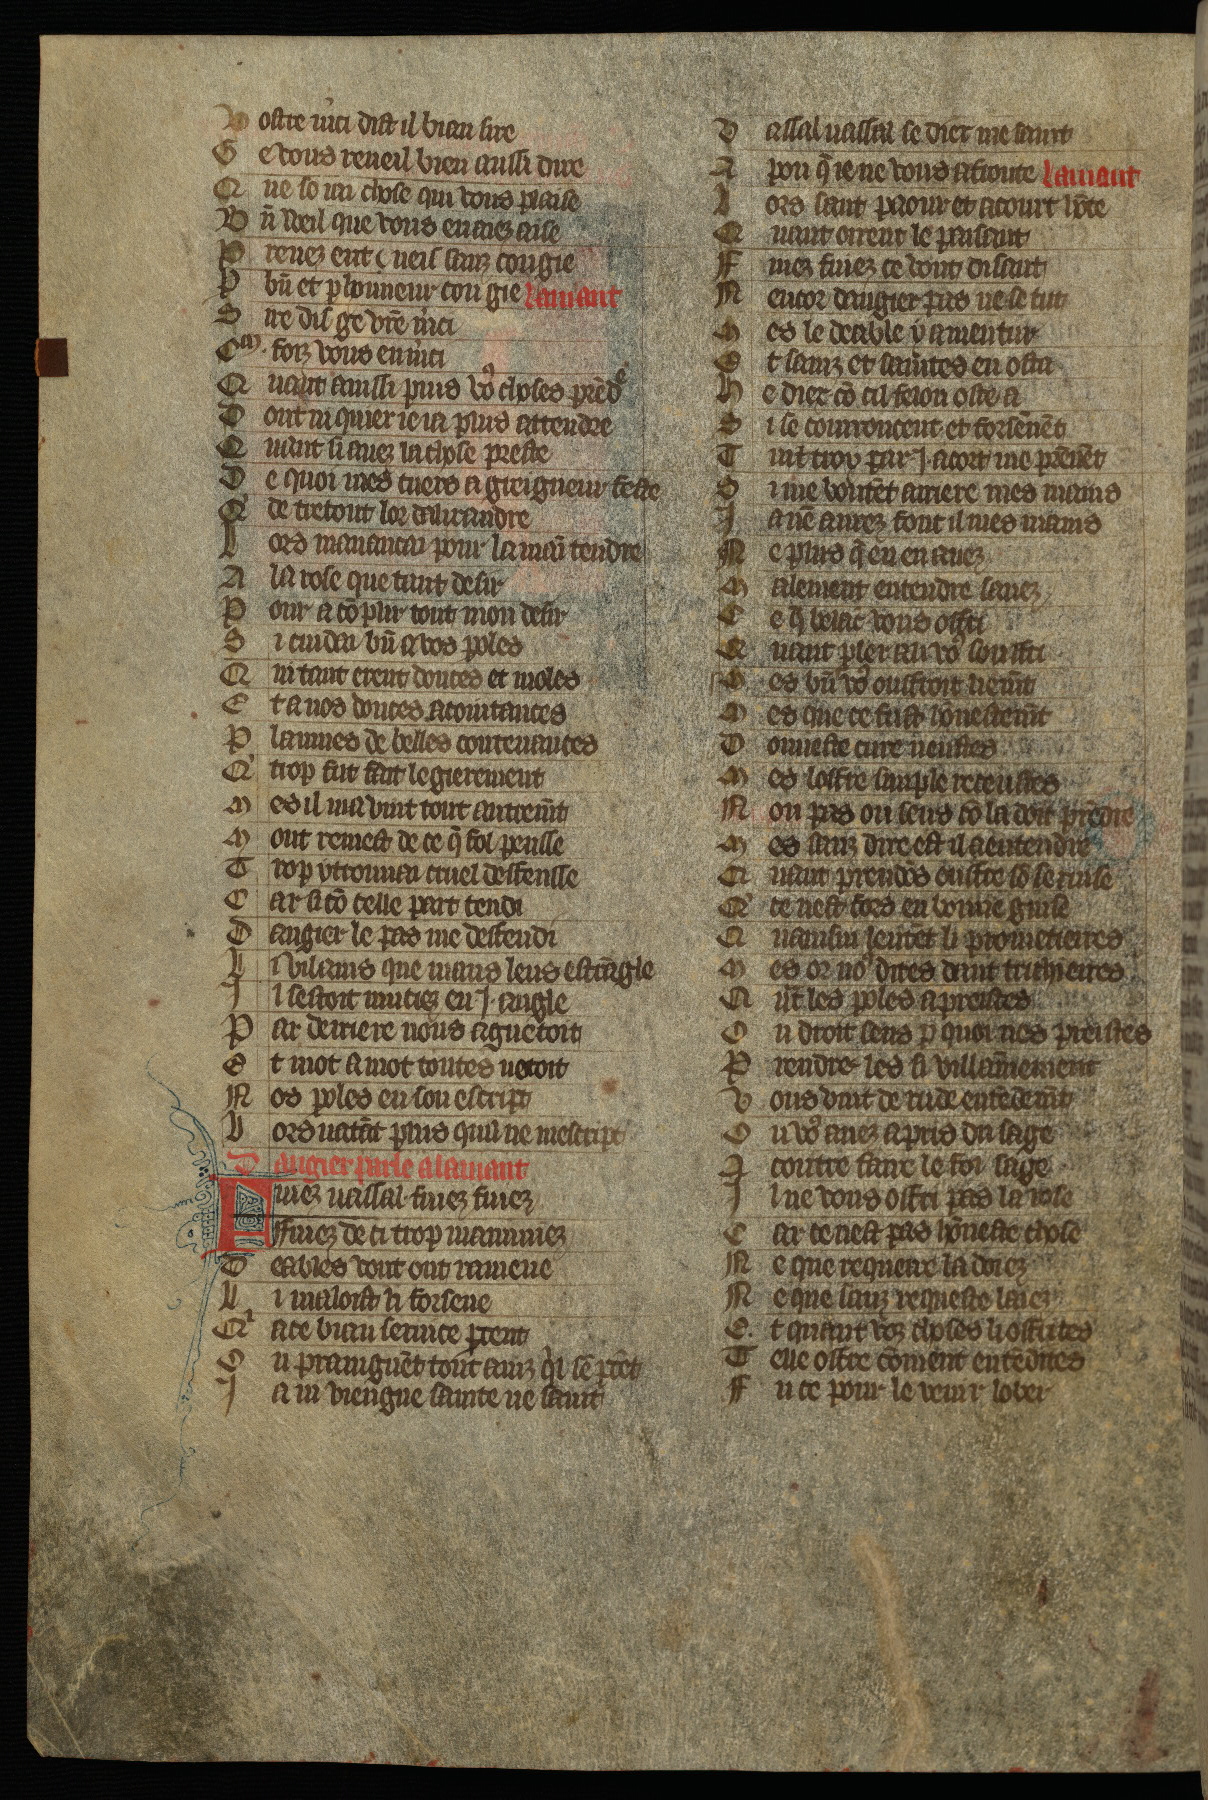 V ostre m̃ci dist il biau sire
G e vous reueil bien aussi dire
Q ue se iai chose qui vous plaise
B ñ weil que vous en aiez aise
P renez ent sanz congie
P bñ et p honneur congie Lamant
S ire dis ge vr̃e m̃ci
C forz vous en m̃ci
Q uant aussi puis vo choses prẽdre
D ont ni quier ie ia plus attendre
Q uant si auez la chose preste
D e quoi mes cuers a greigneur feste
Q de tretout lor dalixandre
L ors mauancai pour la mai tendre
A la rose que tant desir
P our acõplir tout mon desir
S i cuidai bñ a vos poles
Q ui tant erent douces et moles
E t a nos douces acointances
P laines de belles contenances
Q trop fut fait legierement
M es il ma vint tout autremt̃
M out remest de ce q̃ fol pensse
T rop y trouuai cruel deffensse
C ar si cõ celle part tendi
D angier le pas me deffendi
L i vilains que mauz leus estrãgle
I l sestoit muciez en .I. angle
P ar derriere nous aguetoit
E t mot a mot toutes metoit
N os poles en son escript
L ors natãt plus quil ne mescript
D angier parle a lamant
F uiez vassal fuiez fuiez
ffuiez de ci trop mannuiez
D eables vont ont ramene
L i maloist li forsene
Q a ce biau seruice prent
O u praingnẽt tout ainz q̃l sẽ prẽt
J a ni viengne sainte ne saint
V assal vassal se diex me saint
A pou q̃ ie ne vous afronte Lamant
L ors saut paour et acourt hõte
Q uant oirent le paisant
F uiez fuiez ce vont disant
N encor dangier pas ne se tut
M es le deable y amentut
E t sainz et saintes en osta
H e diex cõ cil felon oste a
S i se courroucent et forsenẽt
T uit troy par .I. acort me prẽnẽt
S i me boutẽt arriere mes mains
J a nẽ aurez font il mes mains
N e plus q̃ eu en auez
M alement entendre sauez
C e q̃ belac̃ vous offri
Q uant pler a vo souffri
S es bñ vo ouffroit liemt̃
M es que ce fust hõnestemt̃
D onneste cure neustes
M es loffre simple receustes
N on pas ou sens cõ la doit prẽdre
M es sanz dire est il a entendre
Q uant preudõs ouffre sõ seruise
Q ce nest fors en bonne guise
Q uainsin lentẽt li prometierres
M es or no dites dant trichierres
Q ñt les poles apreistes
O u droit sens p quoi nes preistes
P rendre les si villainnement
V ous vint de rude entẽdemt̃
O u vo auez apris du sage
A contre faire le fol sage
J l ne vous offri pas la rose
C ar ce nest pas hõneste chose
N e que requerre la doiez
N e que sanz requeste laiez
E t quant voz choses li offrites
T elle offre cõment entẽdites
F u ce pour le venir lober